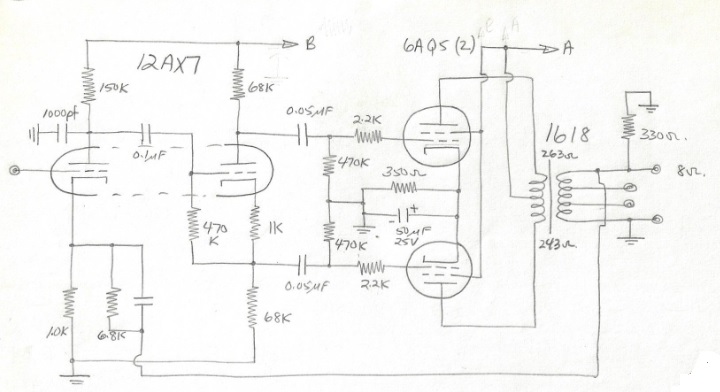 B
12AX7
6AQ5 (2)
A
150K
68K
1000pf
0.05µF
2.2K
1618
263Ω
330Ω.
0.1µF
470K
350Ω
8Ω.
+
470
K
1K
50µF
25V
470K
243Ω.
0.05µF
2.2K
68K
1.0K
6.8K